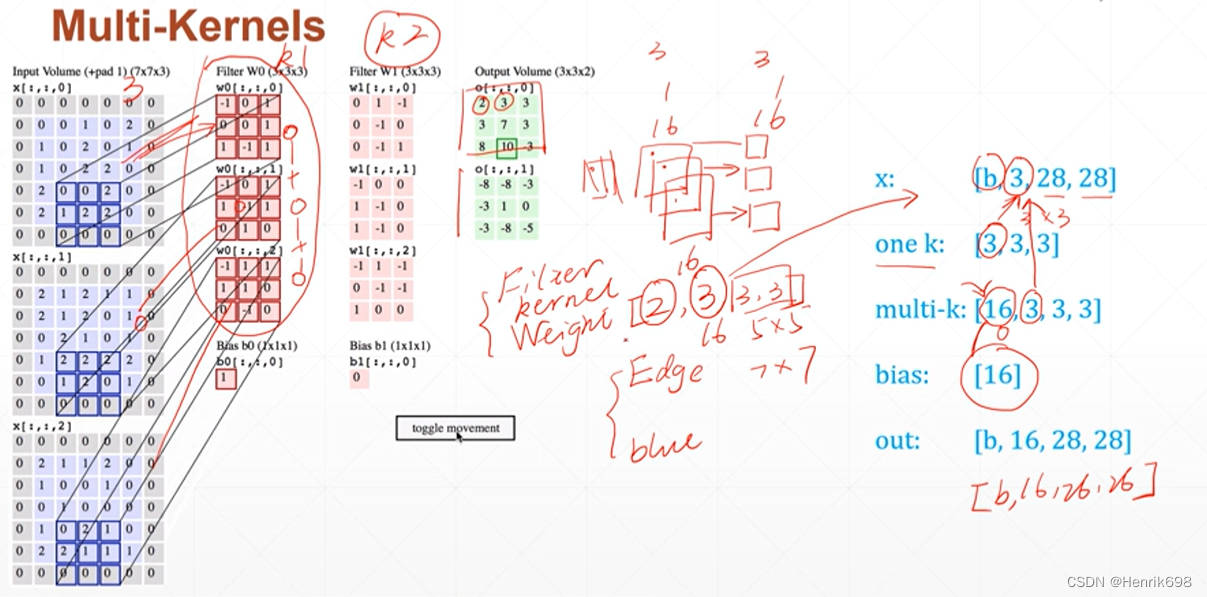 Multi-Kernels
k1
k2
Input Volume (+pad 1) (7x7x3)
3
x[:,:,0]
0 0 0 0 0 0 0
0 0 0 1 0 2 0
0 1 0 2 0 1 0
0 1 0 2 2 0 0
0 2 0 0 2 0 0
0 2 1 2 2 0 0
0 0 0 0 0 0 0
x[:,:,1]
0 0 0 0 0 0 0
0 2 1 2 1 1 0
0 2 1 2 0 1 0
0 0 2 1 0 1 0
0 1 2 2 2 2 0
0 0 1 2 0 1 0
0 0 0 0 0 0 0
x[:,:,2]
0 0 0 0 0 0 0
0 2 1 1 2 0 0
0 1 0 0 1 0 0
0 0 1 0 0 0 0
0 1 0 2 1 0 0
0 2 2 1 1 1 0
0 0 0 0 0 0 0
Filter W0 (3x3x3)
w0[:,:,0]
-1 0 1
0 0 1
1 -1 1
w0[:,:,1]
-1 0 1
1 -1 1
0 1 0
w0[:,:,2]
-1 1 1
1 1 0
0 -1 0
Bias b0 (1x1x1)
b0[:,:,0]
1
Filter W1 (3x3x3)
w1[:,:,0]
0 1 -1
0 -1 0
0 -1 1
w1[:,:,1]
-1 0 0
1 -1 0
1 -1 0
w1[:,:,2]
-1 1 -1
0 -1 -1
1 0 0
Bias b1 (1x1x1)
b1[:,:,0]
0
Output Volume (3x3x2)
o[:,:,0]
2 3 3
3 7 3
8 10 -3
o[:,:,1]
-8 -8 -3
-3 1 0
-3 -8 -5
toggle movement
3 3
1 1
16 16
Filter
kernel
Weight
16
[2, 3 [3,3]]
16 5×5
Edge 7×7
blue
x: [b, 3, 28, 28]
3 ×3
one k: [3, 3, 3]
multi-k: [16, 3, 3, 3]
bias: [16]
out: [b, 16, 28, 28]
[b,16,26,26]
CSDN @Henrik698